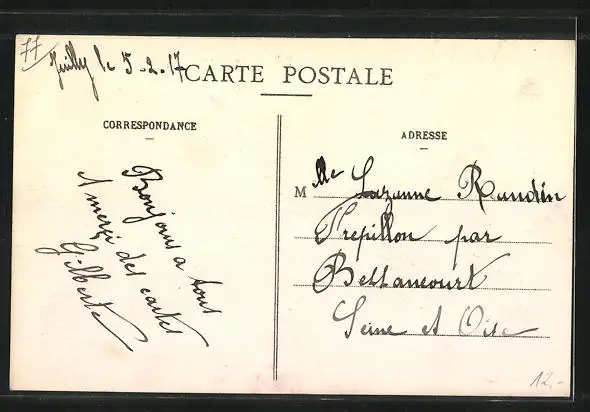 77
Juilly le 5-2-17
CARTE POSTALE
CORRESPONDANCE
Bonjours a tous
A merçi des cartes
Gilberte
ADRESSE
Mlle Suzanne Raudin
Frepillon par
Bessancourt
Seine et Oise
12,-